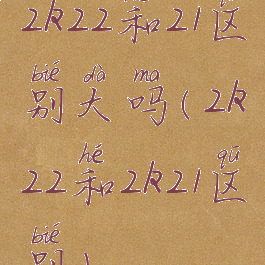 2K22和21区
bié dà ma
别大吗(2K
hé qū
22和2K21区
bié
别)